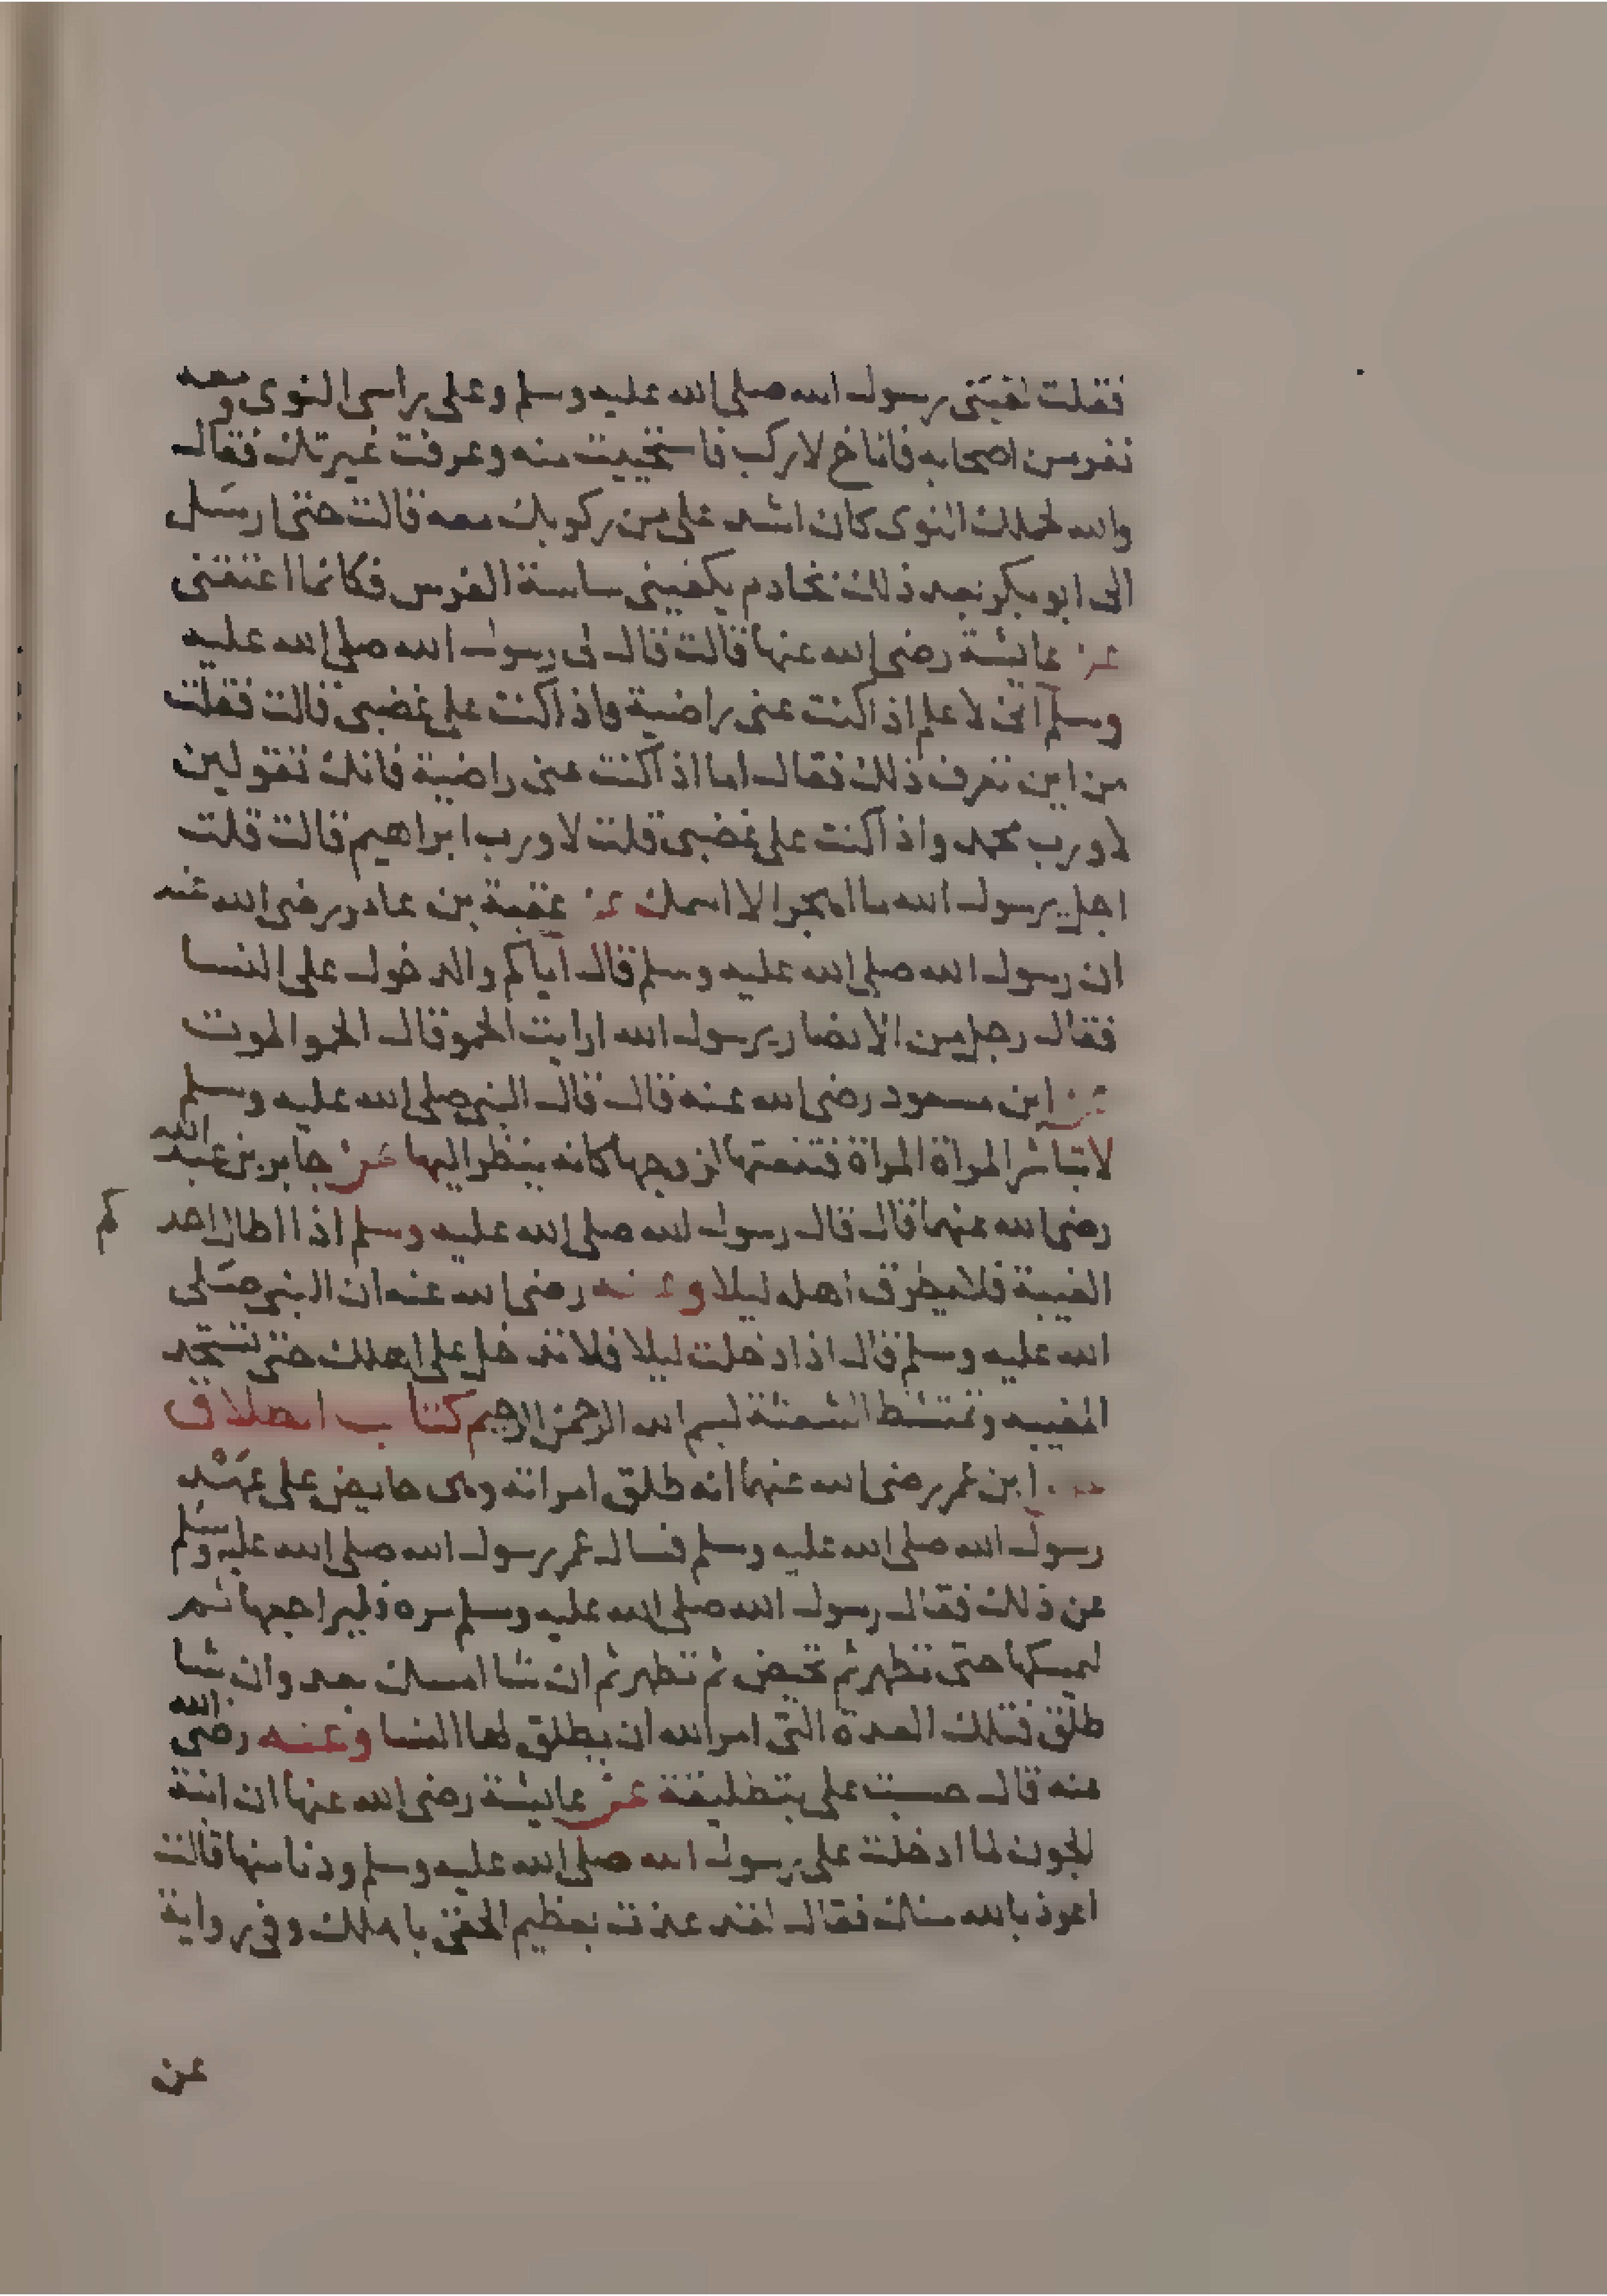 فقلت لقيني رسول الله صلى الله عليه وسلم وعلى راسي النوى ومعه
نفر من اصحابه فاناخ لاركب فاستحييت منه وعرفت غيرتك فقال
والله لحملك النوى كان اشد علي من ركوبك معه قالت حتى ارسل
الى ابو بكر بعد ذلك بخادم يكفيني سياسة الفرس فكانما اعتقني
عن عايشة رضي الله عنها قالت قال لي رسول الله صلى الله عليه
وسلم اني لاعلم اذا كنت عني راضية واذا كنت علي غضبى قالت فقلت
من اين تعرف ذلك فقال اما اذا كنت عني راضية فانك تقولين
لا ورب محمد واذا كنت علي غضبى قلت لا ورب ابراهيم قالت قلت
اجل يرسول الله ما اهجر الا اسمك عن عقبة بن عامر رضي الله عنه
ان رسول الله صلى الله عليه وسلم قال اياكم والدخول على النسا
فقال رجل من الانصار يرسول الله ارايت الحمو قال الحمو الموت
عن ابن مسعود رضي الله عنه قال قال النبي صلى الله عليه وسلم
لا تباشر المراة المراة فتنعتها لزوجها كانه ينظر اليها عن جابر بن عبد الله
رضي الله عنهما قال قال رسول الله صلى الله عليه وسلم اذا اطال احدكم
الغيبة فلا يطرق اهله ليلا وعنه رضي الله عنه ان النبي صلى
الله عليه وسلم قال اذا دخلت ليلا فلا تدخل على اهلك حتى تستحد
المغيبه وتمتشط الشعثة بسم الله الرحمن الرحيم كتاب الطلاق
عن ابن عمر رضي الله عنهما انه طلق امراته وهي حايض على عهد
رسول الله صلى الله عليه وسلم فسال عمر رسول الله صلى الله عليه وسلم
عن ذلك فقال رسول الله صلى الله عليه وسلم مره فليراجعها ثم
ليمسكها حتى تطهر ثم تحيض ثم تطهر ثم ان شا امسك بعد وان شا
طلق فتلك العدة التي امر الله ان يطلق لها النسا وعنه رضي الله
عنه قال حسبت علي بتطليقة عن عايشة رضي الله عنها ان ابنة
الجون لما ادخلت على رسول الله صلى الله عليه وسلم ودنا منها قالت
اعوذ بالله منك فقال لقد عذت بعظيم الحقي باهلك وفي رواية
عن